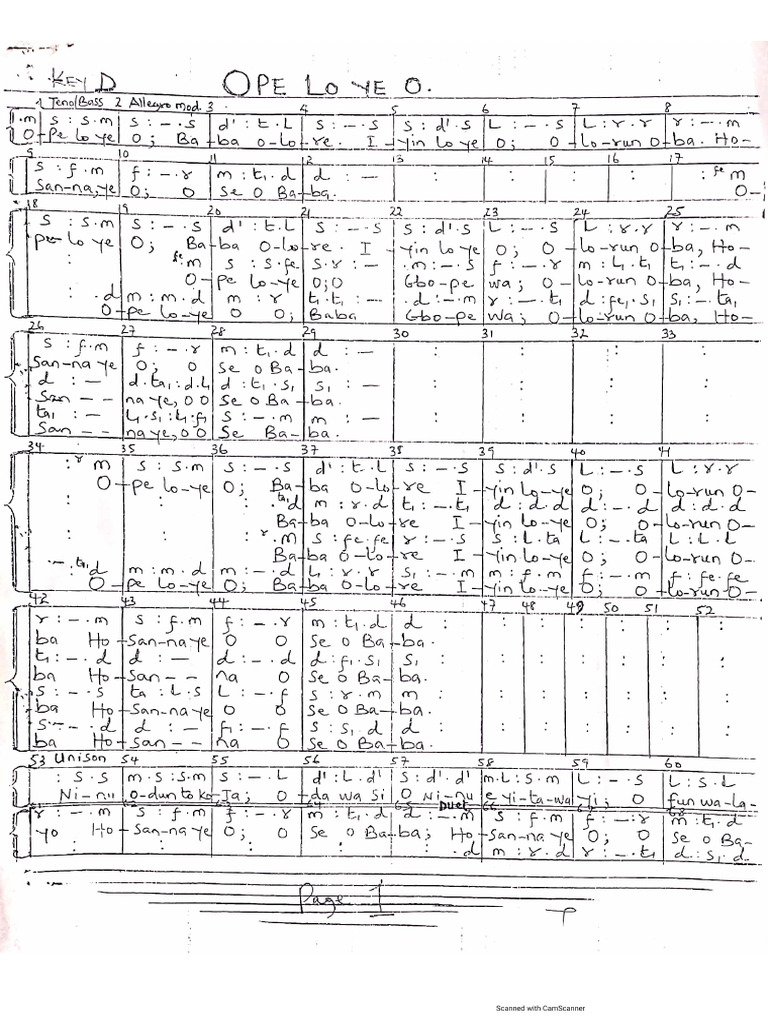 KEY D OPE LO YE O.
1 Teno/Bass 2 Allegro mod. 3 4 5 6 7 8
:.m | s : s.m | s : – . s | d' : t . L | s : – . s | s : d' . s | L : – . s | L : r . r | r : – . m
O– Pe lo ye O; Ba– ba o–lo– re. I –yin lo ye O; O –lo–run O– ba. Ho–
9 10 11 12 13 14 15 16 17
s : f . m | f : – . r | m : t₁ . d | d : – | : | : | : | : | : fe m
San–na, ye O; O Se O Ba– ba. O–
18 19 20 21 22 23 24 25
s : s . m | s : – . s | d' : t . L | s : – . s | s : d' . s | L : – . s | L : r . r | r : – . m
pe lo ye O; Ba– ba O–lo– re. I –yin lo ye O; O –lo–run O– ba, Ho–
: | : fe m | s : s . fe | s . r : – | . m : – . s | f : – . r | m : L₁ . t₁ | t₁ : – . d
O– pe lo–ye O; O Gbo–pe wa; O– lo–run O– ba, Ho–
: . d | m : m . d | m : r | t₁ . t₁ : – | . d : – . m | r : – . t₁ | d : fe₁ . s₁ | s₁ : – . ta₁
O– pe lo–ye O O; Baba Gbo–pe Wa; O– lo–run O– ba, Ho–
26 27 28 29 30 31 32 33
s : f . m | f : – . r | m : t₁ . d | d : – | : | : | : | :
San–na ye O; O Se O Ba– ba.
d : – | d . ta₁ : d . L₁ | d : t₁ . s₁ | s₁ : – | : | : | : | :
San – – na ye, O O Se O Ba – ba.
ta₁ : – | L₁ . s₁ : L₁ . f₁ | s : – . m | m : – | : | : | : | :
San – – na ye, O O Se Ba– ba.
34 35 36 37 38 39 40 41
: r m | s : s . m | s : – . s | d' : t . L | s : – . s | s : d' . s | L : – . s | L : r . r
O– pe lo–ye O; Ba– ba O–lo– re I –yin lo–ye O; O –lo–run O–
: | : | : ta₁ d | m : r . d | t₁ : – . t₁ | d : d . d | d : – . d | d : d . d
Ba– ba O–lo– re I –yin lo–ye O; O –lo–run O–
: | : | : r . m | s : fe . fe | r : – . s | s : L . ta | L : – . ta | L : L . L
Ba– ba O–lo– re I –yin lo–ye O; O –lo–run O–
– . ta₁ d | m : m . d | m : – . d | L₁ : r . r | s₁ : – . m | m : f . m | f : – . m | f : fe . fe
O– pe lo–ye O; Ba– ba O–lo– re I –yin lo–ye O; O –lo–run O–
42 43 44 45 46 47 48 49 50 51 52
r : – . m | s : f . m | f : – . r | m : t₁ . d | d : | : | : | : | : | : | :
ba Ho –San–na ye O O Se O Ba– ba.
t₁ : – . d | d : – | d : – . d | d : f₁ . s₁ | s₁ : | : | : | : | : | : | :
ba Ho –San – – na O Se O Ba– ba.
s : – . s | ta : L . s | L : – . f | s : r . m | m : | : | : | : | : | : | :
ba Ho –San–na ye O O Se O Ba– ba.
s : – . d | d : – | f₁ : – . f | s : s₁ . d | d : | : | : | : | : | : | :
ba Ho –San – – na O Se O Ba– ba.
53 Unison 54 55 56 57 58 59 60
: s . s | m . s : s . m | s : – . L | d' : L . d' | s : d' . d' | m . L : s . m | L : – . s | L : s . L
Ni–nu O–dun to ko –Ja; O –da wa si O Ni–nu e yi–ta–wa yi; O fun wa–la–
62 64 65 Duet 66 68
r : – . m | s : f . m | f : – . r | m : t₁ . d | d : – . m | s : f . m | f : – . r | m : t₁ . d
yo Ho –San–na ye O; O Se O Ba– ba; Ho –San–na ye O; O Se O Ba–
: | : | : | : | : . d | m : r . d | r : – . t₁ | d : s₁ . d
Page 1
Scanned with CamScanner